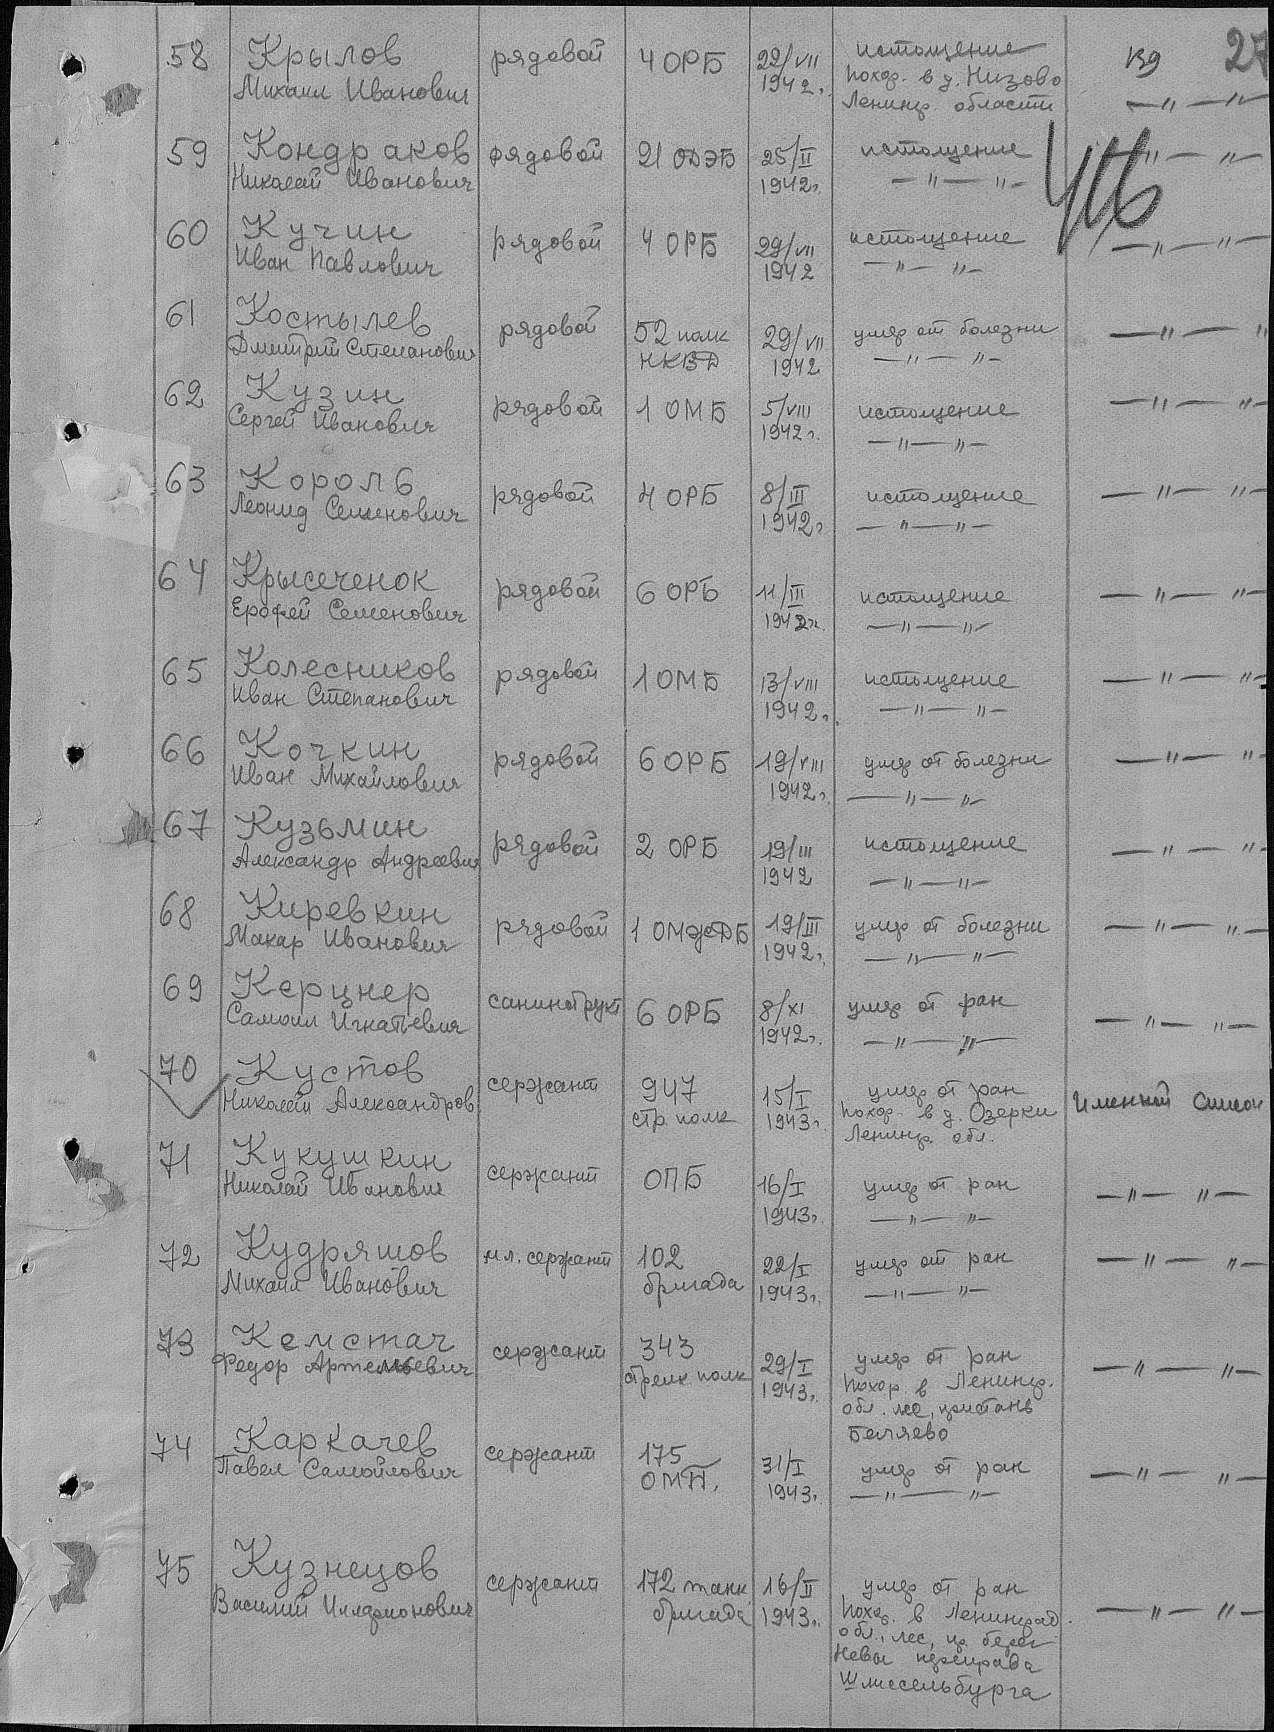 27
58 Крылов рядовой 4 ОРБ 22/VII истощение
Михаил Иванович 1942г. похор. в д. Низово
Ленингр. области —"— "—
59 Кондраков рядовой 21 25/II истощение —"— "—
Николай Иванович 1942г. —"— "—
60 Кучин рядовой 4 ОРБ 29/VII истощение —"— "—
Иван Павлович 1942 —"— "—
61 Костылев рядовой 52 полк 29/VII умер от болезни —"— "
Дмитрий Степанович НКВД 1942 —"— "—
62 Кузин рядовой 1 ОМБ 5/VIII истощение —"— "—
Сергей Иванович 1942г. —"— "—
63 Король рядовой 4 ОРБ 8/III истощение —"— "—
Леонид Семенович 1942г. —"— "—
64 Крысеченок рядовой 6 ОРБ 11/III истощение —"— "—
Ерофей Семенович 1942г. —"— "—
65 Колесников рядовой 1 ОМБ 13/VIII истощение —"— "—
Иван Степанович 1942г. —"— "—
66 Кочкин рядовой 6 ОРБ 19/VIII умер от болезни —"— "—
Иван Михайлович 1942г. —"— "—
67 Кузьмин рядовой 2 ОРБ 19/III истощение —"— "—
Александр Андреевич 1942 —"— "—
68 Киревкин рядовой 1 19/III умер от болезни —"— "—
Макар Иванович 1942г. —"— "—
69 Керцнер санинструкт 6 ОРБ 8/XI умер от ран —"— "—
Самоил Игнатьевич 1942г. —"— "—
70 Кустов сержант 947 15/I умер от ран Именной список
Николай Александров стр. полк 1943г. похор. в д. Озерки
Ленингр. обл.
71 Кукушкин сержант ОПБ 16/I умер от ран —"— "—
Николай Иванович 1943г. —"— "—
72 Кудряшов мл. сержант 102 22/I умер от ран —"— "—
Михаил Иванович бригада 1943г. —"— "—
73 Кемстач сержант 343 29/I умер от ран —"— "—
Федор Артемьевич стрелк полк 1943г. похор в Ленингр.
обл. лес, пристань
Беляево
74 Каркачев сержант 175 31/I умер от ран —"— "—
Павел Самойлович ОМП. 1943г. —"— "—
75 Кузнецов сержант 172 танк. 16/II умер от ран —"— "—
Василий Илларионович бригада 1943г. похор. в Ленинград.
обл., лес, пр. берег
Невы переправа
Шлиссельбурга